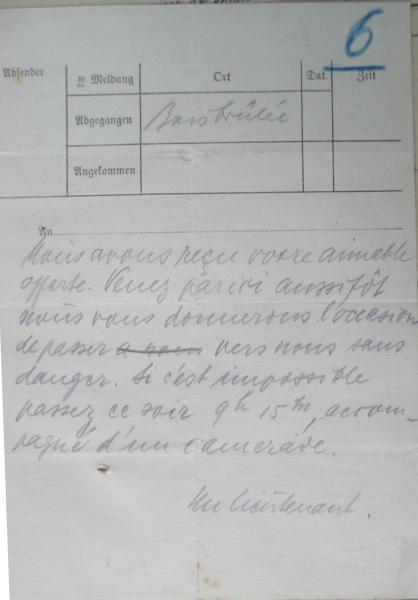 6
Absender
te Meldung
Ort
Dat.
Zeit
Abgegangen
Bois brûlée
Angekommen
An
Nous avons reçu votre aimable
offerte. Venez par ici aussitôt
nous vous donnerons l'occasion
de passer a nous vers nous sans
danger. Si c'est impossible
passez ce soir 9h 15m, accom-
pagné d'un camerade.
Un lieutenant.